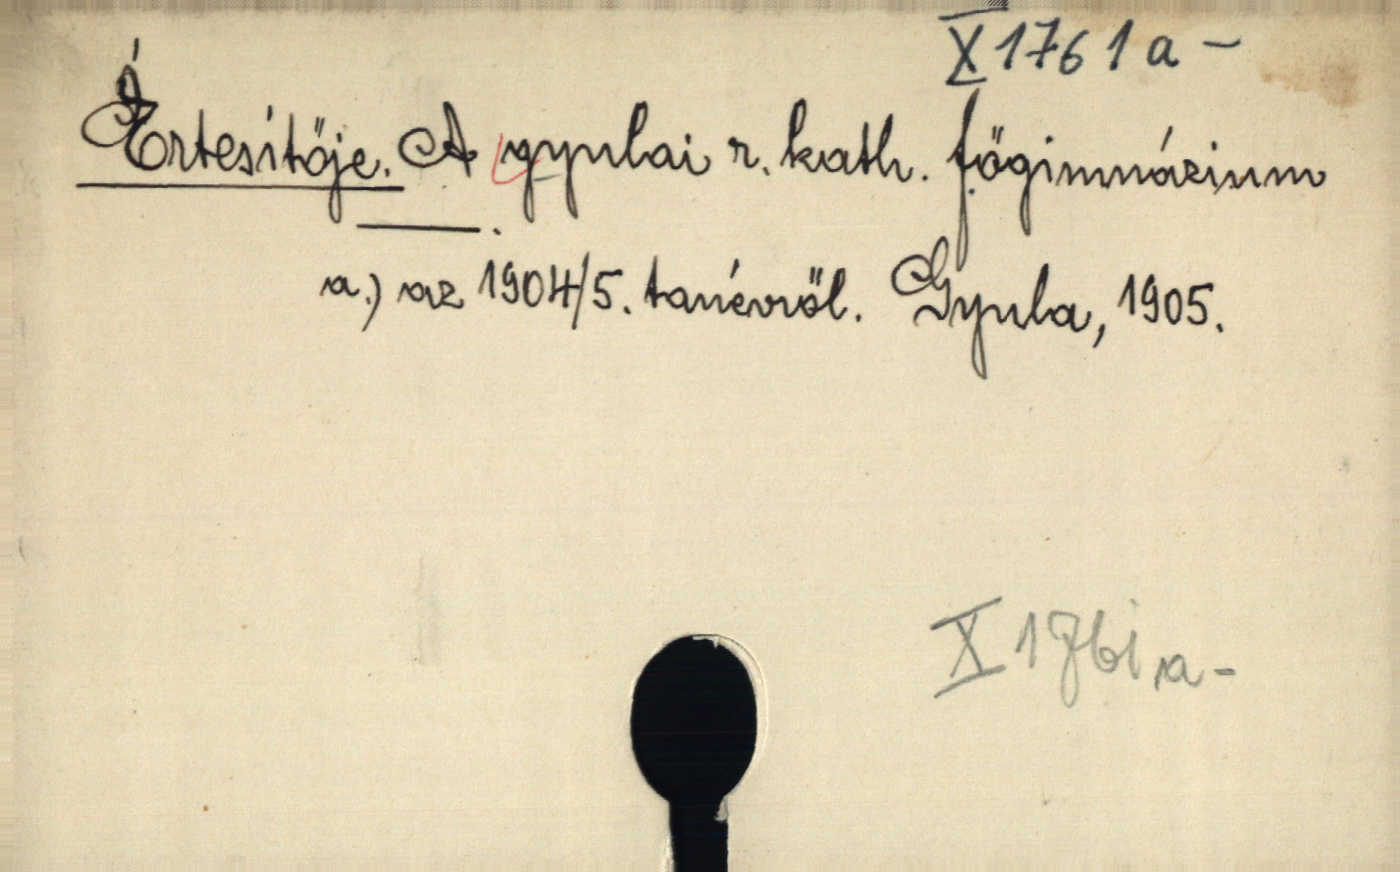 X 1761 a -
Értesítője. A gyulai r. kath. főgimnázium
———.
a.) az 1904/5. tanévről. Gyula, 1905.
X 1761 a -